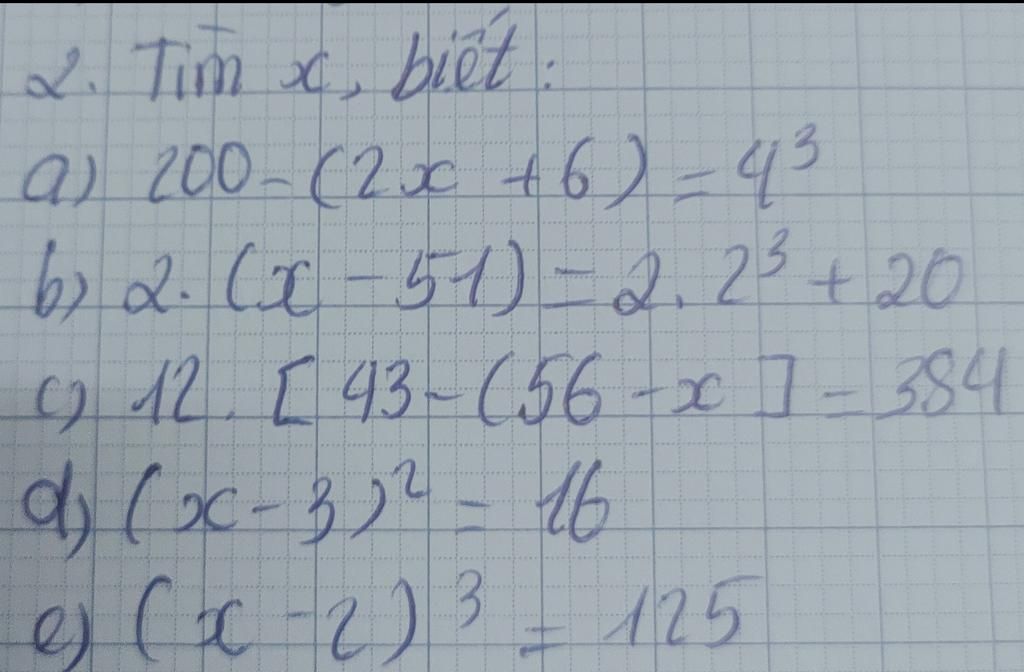 2. Tìm x, biết:
a) 200 - (2x + 6) = 4³
b) 2. (x - 51) = 2. 2³ + 20
c) 12. [ 43 - (56 - x ] = 384
d) (x - 3)² = 16
e) (x - 2)³ = 125